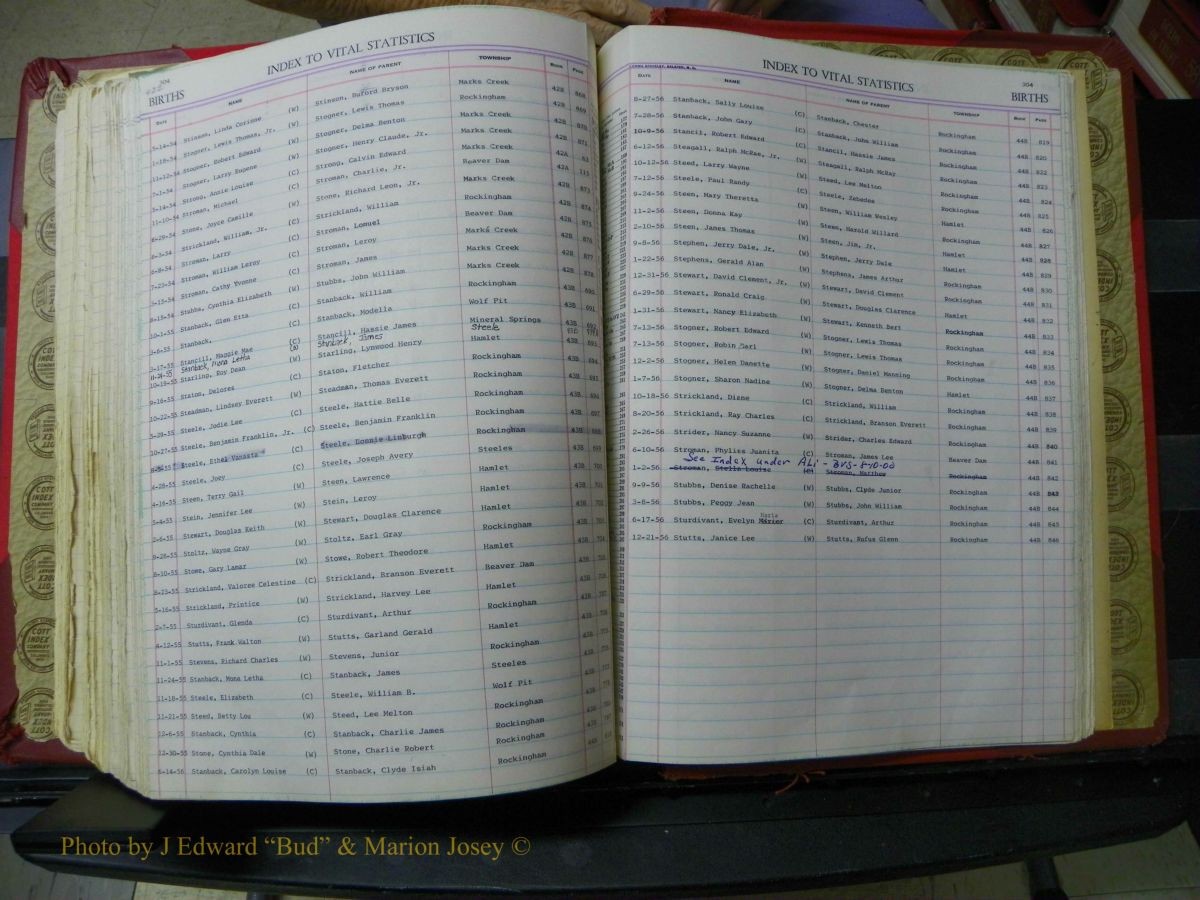 304
INDEX TO VITAL STATISTICS
BIRTHS
DATE NAME NAME OF PARENT TOWNSHIP BOOK PAGE
3-14-54 Stinson, Linda Corinne (W) Stinson, Buford Bryson Marks Creek 42B 868
1-18-54 Stogner, Lewis Thomas, Jr. (W) Stogner, Lewis Thomas Rockingham 42B 869
11-12-54 Stogner, Robert Edward (W) Stogner, Delma Benton Marks Creek 42B 870
7-1-54 Stogner, Larry Eugene (W) Stogner, Henry Claude, Jr. Marks Creek 42B 871
3-14-54 Strong, Annie Louise (C) Strong, Calvin Edward Marks Creek 42A 83
11-10-54 Stroman, Michael (C) Stroman, Charlie, Jr. Beaver Dam 42A 115
8-29-54 Stone, Joyce Camille (W) Stone, Richard Leon, Jr. Marks Creek 42B 873
Strickland, William, Jr. (C) Strickland, William Rockingham 42B 874
Stroman, Larry (C) Stroman, Lomuel Beaver Dam 42B 875
7-23-54 Stroman, William Leroy (C) Stroman, Leroy Marks Creek 42B 876
Stroman, Cathy Yvonne (C) Stroman, James Marks Creek 42B 877
8-15-54 Stubbs, Cynthia Elizabeth (W) Stubbs, John William Marks Creek 42B 878
10-1-55 Stanback, Glen Etta (C) Stanback, William Rockingham 43B 691
3-6-55 Stanback, (C) Stanback, Modella Wolf Pit
3-17-55 Stancill, Maggie Mae (C) Stancill, Hassie James Mineral Springs 43B 692
11-24-55 Stanback, Mona Letha Stanback, James Steele
10-19-55 Starling, Roy Dean (W) Starling, Lynwood Henry Hamlet 43B 693
9-16-55 Delores (C) Staton, Fletcher Rockingham 43B 694
10-22-55 Steadman, Lindsey Everett (W) Steadman, Thomas Everett Rockingham 43B
Steele, Jodie Lee (C) Steele, Hattie Belle Rockingham 43B
10-27-55 Steele, Benjamin Franklin, Jr. (C) Steele, Benjamin Franklin Rockingham 43B 697
Steele, Ethel Vanasta (C) Steele, Donnie Linburgh Rockingham 43B
4-28-55 Steele, Joey (C) Steele, Joseph Avery Steeles 43B
4-16-55 Steen, Terry Gail (W) Steen, Lawrence Hamlet 43B 700
5-4-55 Stein, Jennifer Lee (W) Stein, Leroy Hamlet 43B
2-6-55 Stewart, Douglas Keith (W) Stewart, Douglas Clarence Hamlet 43B
Stoltz, Wayne Gray (W) Stoltz, Earl Gray Rockingham 43B
8-10-55 Stowe, Gary Lamar (W) Stowe, Robert Theodore Hamlet 43B
8-23-55 Strickland, Valoree Celestine (C) Strickland, Branson Everett Beaver Dam 43B
5-16-55 Strickland, Printice (W) Strickland, Harvey Lee Hamlet 43B
2-7-55 Sturdivant, Glenda (C) Sturdivant, Arthur Rockingham 43B
4-12-55 Stutts, Frank Walton (W) Stutts, Garland Gerald Hamlet 43B
11-1-55 Stevens, Richard Charles (W) Stevens, Junior Rockingham 43B
11-24-55 Stanback, Mona Letha (C) Stanback, James Steeles 43B
11-18-55 Steele, Elizabeth (C) Steele, William B. Wolf Pit 43B
11-21-55 Steed, Betty Lou (W) Steed, Lee Melton Rockingham 43B
12-6-55 Stanback, Cynthia (C) Stanback, Charlie James Rockingham 43B
12-30-55 Stone, Cynthia Dale (W) Stone, Charlie Robert Rockingham
8-14-56 Stanback, Carolyn Louise (C) Stanback, Clyde Isiah Rockingham 44B
INDEX TO VITAL STATISTICS
304
BIRTHS
DATE NAME NAME OF PARENT TOWNSHIP BOOK PAGE
8-27-56 Stanback, Sally Louise (C) Stanback, Chester Rockingham 44B 819
7-28-56 Stanback, John Gary (C) Stanback, John William Rockingham 44B 820
10-9-56 Stancil, Robert Edward (C) Stancil, Hassie James Rockingham 44B 822
6-12-56 Steagall, Ralph McRae, Jr. (W) Steagall, Ralph McRay Rockingham 44B 823
10-12-56 Steed, Larry Wayne (W) Steed, Lee Melton Rockingham 44B 824
7-12-56 Steele, Paul Randy (C) Steele, Zebedee Rockingham 44B 825
9-24-56 Steen, Mary Theretta (C) Steen, William Wesley Hamlet 44B 826
11-2-56 Steen, Donna Kay (W) Steen, Harold Willard Rockingham 44B 827
2-10-56 Steen, James Thomas (W) Steen, Jim, Jr. Hamlet 44B 828
9-8-56 Stephen, Jerry Dale, Jr. (W) Stephen, Jerry Dale Hamlet 44B 829
1-22-56 Stephens, Gerald Alan (W) Stephens, James Arthur Rockingham 44B 830
12-31-56 Stewart, David Clement, Jr. (W) Stewart, David Clement Rockingham 44B 831
6-29-56 Stewart, Ronald Craig (W) Stewart, Douglas Clarence Hamlet 44B 832
1-31-56 Stewart, Nancy Elizabeth (W) Stewart, Kenneth Bert Rockingham 44B 833
7-13-56 Stogner, Robert Edward (W) Stogner, Lewis Thomas Rockingham 44B 834
7-13-56 Stogner, Robin Earl (W) Stogner, Lewis Thomas Rockingham 44B 835
12-2-56 Stogner, Helen Danette (W) Stogner, Daniel Manning Rockingham 44B 836
1-7-56 Stogner, Sharon Nadine (W) Stogner, Delma Benton Hamlet 44B 837
10-18-56 Strickland, Diane (C) Strickland, William Rockingham 44B 838
8-20-56 Strickland, Ray Charles (C) Strickland, Branson Everett Rockingham 44B 839
2-26-56 Strider, Nancy Suzanne (W) Strider, Charles Edward Rockingham 44B 840
6-10-56 Stroman, Phyliss Juanita (C) Stroman, James Lee Beaver Dam 44B 841
See Index under ALi - BVS-8-10-00
1-2-56 Stroman, Stella Louise Stroman, Matthew Rockingham 44B 842
9-9-56 Stubbs, Denise Rachelle (W) Stubbs, Clyde Junior Rockingham 44B 843
3-8-56 Stubbs, Peggy Jean (W) Stubbs, John William Rockingham 44B 844
Marie
6-17-56 Sturdivant, Evelyn Marier (C) Sturdivant, Arthur Rockingham 44B 845
12-21-56 Stutts, Janice Lee (W) Stutts, Rufus Glenn Rockingham 44B 846
COTT INDEX COMPANY
Photo by J Edward “Bud” & Marion Josey ©